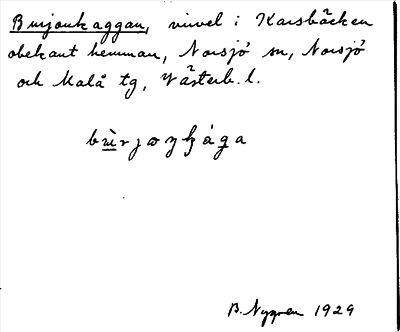 Burjoukaggan, virvel i Karsbäcken
obekant hemman, Norsjö sn, Norsjö
och Malå tg, Västerb. l.
B. Nygren 1929